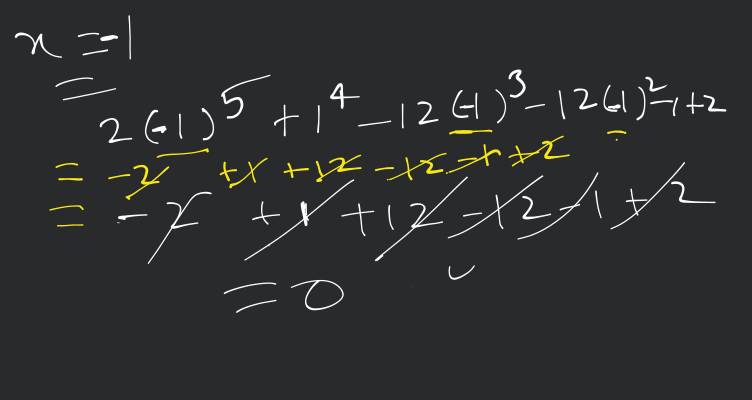 x = -1
=
2(-1)⁵ + 1⁴ - 12(-1)³ - 12(-1)² - 1 + 2
= -2 + 1 + 12 - 12 - 1 + 2
= -2 + 1 + 12 - 12 - 1 + 2
= 0